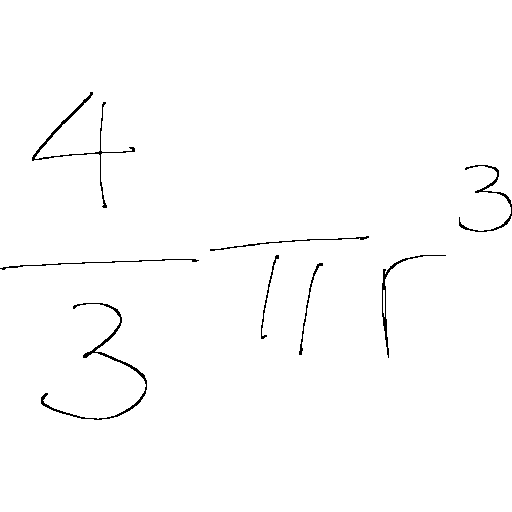 \frac{4}{3}\pi r^3